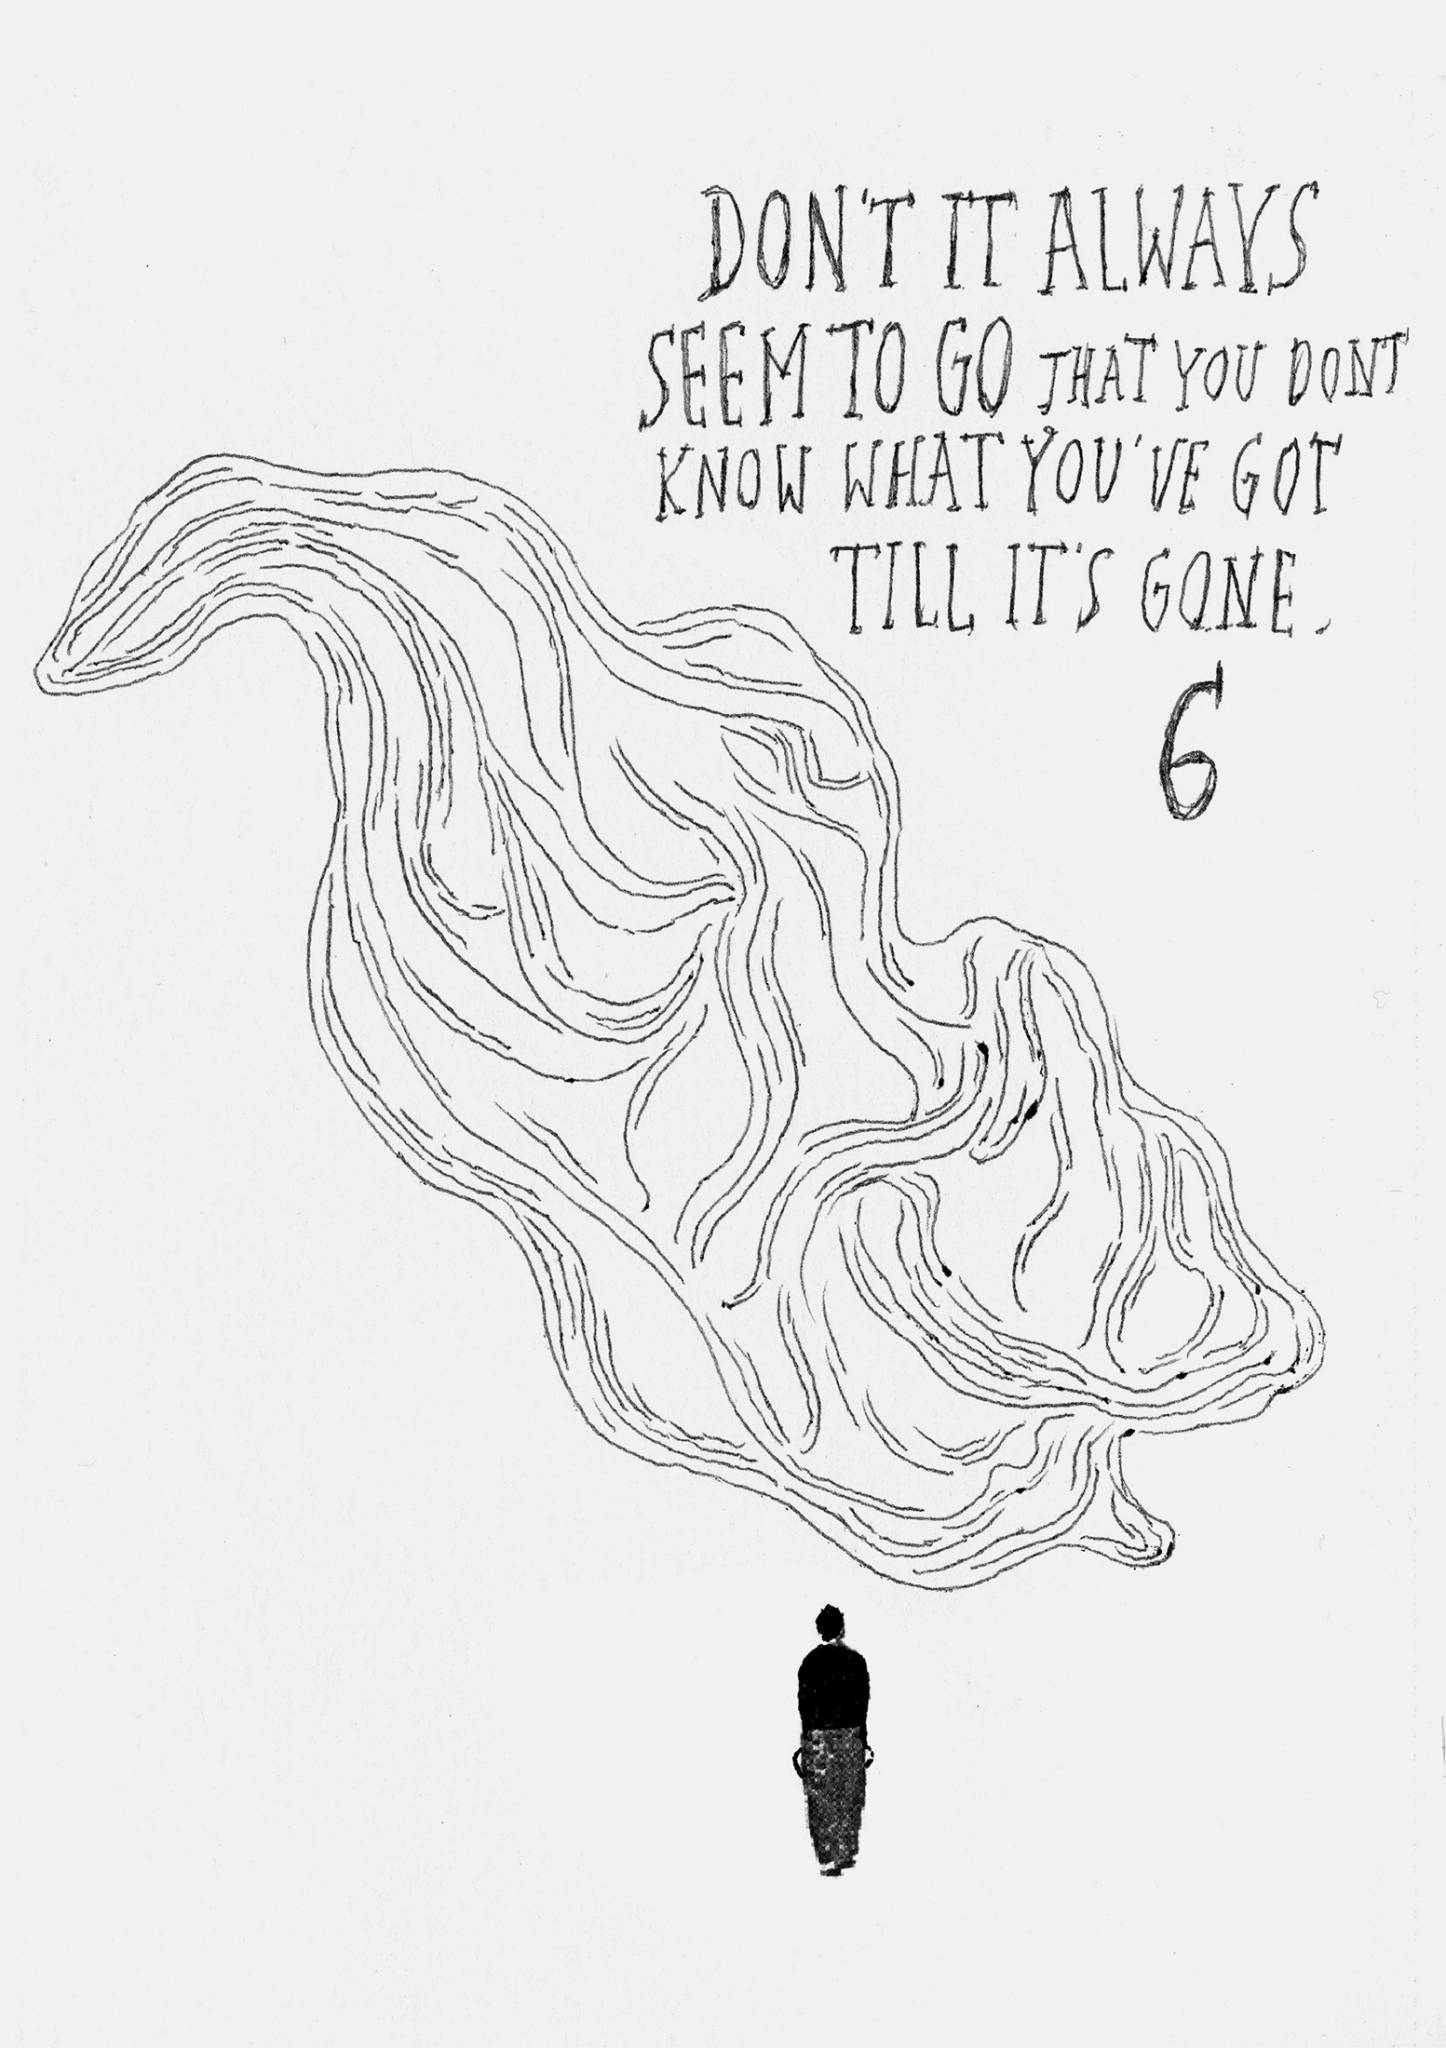 DON'T IT ALWAYS
SEEM TO GO THAT YOU DONT
KNOW WHAT YOU'VE GOT
TILL IT'S GONE.
6